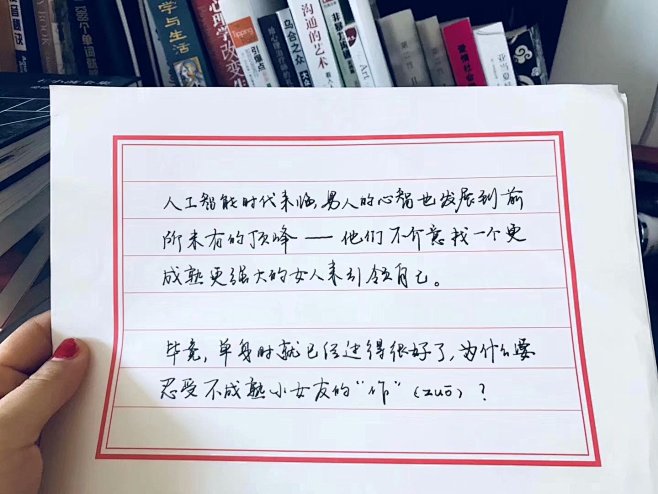 1368个单词就够
学与生活
心理学改变生
Tipping
引爆点
乌合之众
沟通的艺术
爱情社会
亚当夏娃
人工智能时代来临,男人的心智也发展到前
所未有的顶峰——他们不介意找一个更
成熟更强大的女人来引领自己。
毕竟,单身时就已经过得很好了,为什么要
忍受不成熟小女友的“作”(zuō)?